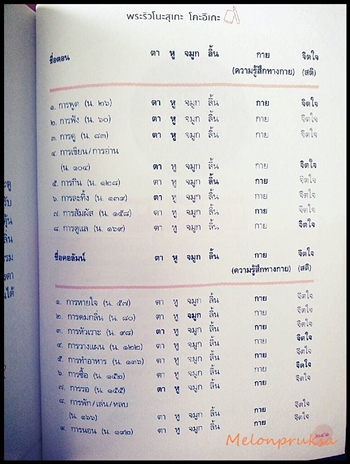 พระริวโนะสุเกะ โคะอิเกะ
ชื่อตอน ตา หู จมูก ลิ้น กาย จิตใจ
(ความรู้สึกทางกาย) (สติ)
๑. การพูด (น. ๒๖) ตา หู จมูก ลิ้น กาย จิตใจ
๒. การฟัง (น. ๖๐) ตา หู จมูก ลิ้น กาย จิตใจ
๓. การดู (น. ๘๓) ตา หู จมูก ลิ้น กาย จิตใจ
๔. การเขียน/การอ่าน
(น. ๑๐๔) ตา หู จมูก ลิ้น กาย จิตใจ
๕. การกิน (น. ๑๒๘) ตา หู จมูก ลิ้น กาย จิตใจ
๖. การละทิ้ง (น. ๑๓๙) ตา หู จมูก ลิ้น กาย จิตใจ
๗. การสัมผัส (น. ๑๕๘) ตา หู จมูก ลิ้น กาย จิตใจ
๘. การดูแล (น. ๑๖๙) ตา หู จมูก ลิ้น กาย จิตใจ
ชื่อคอลัมน์ ตา หู จมูก ลิ้น กาย จิตใจ
(ความรู้สึกทางกาย) (สติ)
๑. การหายใจ (น. ๕๗) ตา หู จมูก ลิ้น กาย จิตใจ
๒. การดมกลิ่น (น. ๘๐) ตา หู จมูก ลิ้น กาย จิตใจ
๓. การหัวเราะ (น. ๙๘) ตา หู จมูก ลิ้น กาย จิตใจ
๔. การวางแผน (น. ๑๒๒) ตา หู จมูก ลิ้น กาย จิตใจ
๕. การทำอาหาร (น. ๑๓๖) ตา หู จมูก ลิ้น กาย จิตใจ
๖. การซื้อ (น. ๑๕๑) ตา หู จมูก ลิ้น กาย จิตใจ
๗. การรอ (น. ๑๕๕) ตา หู จมูก ลิ้น กาย จิตใจ
๘. การพัก/เล่น/หลบ
(น. ๑๖๖) ตา หู จมูก ลิ้น กาย จิตใจ
๙. การนอน (น. ๑๙๒) ตา หู จมูก ลิ้น กาย จิตใจ
Melonpruksa